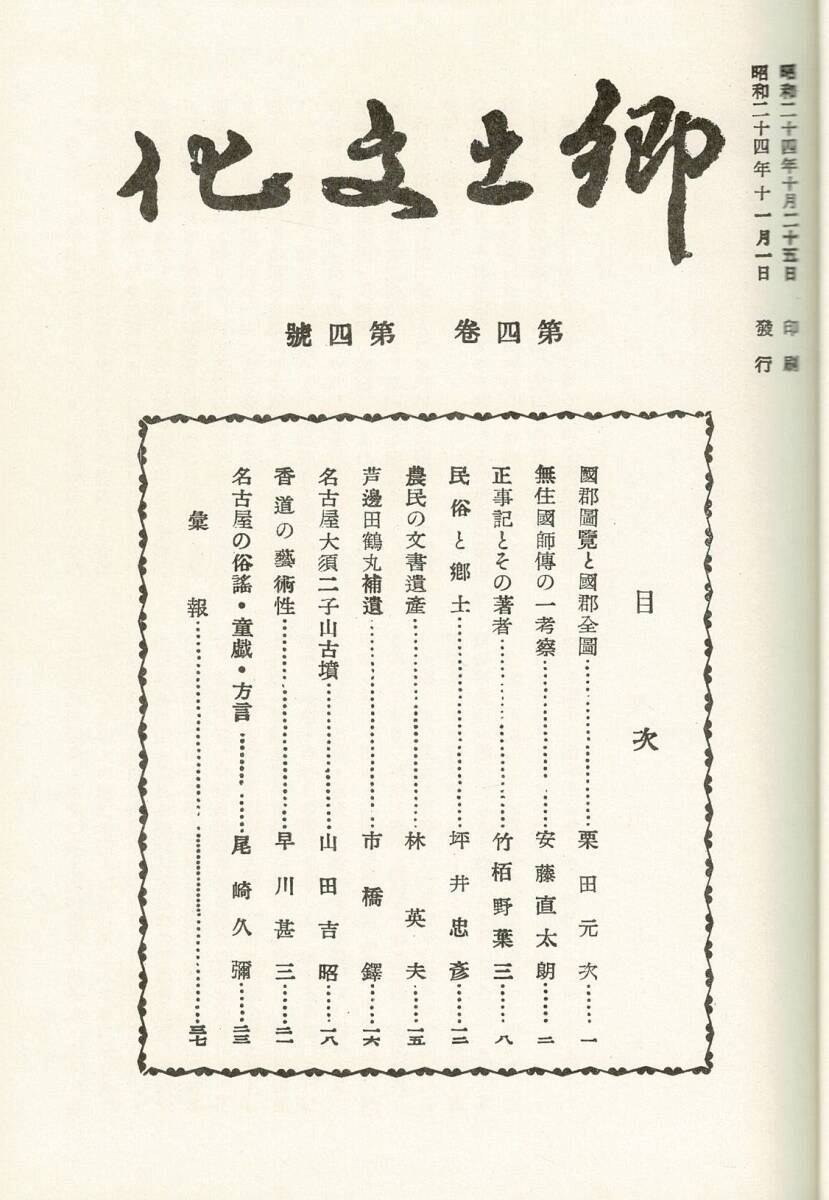 昭和二十四年十月二十五日 印刷
昭和二十四年十一月一日 發行
鄕土文化
第四卷 第四號
目次
國郡圖覽と國郡全圖……………栗田元次……一
無住國師傳の一考察……………安藤直太朗……二
正事記とその著者……………竹栢野葉三……八
民俗と鄕土……………坪井忠彥……一二
農民の文書遺產……………林英夫……一五
芦邊田鶴丸補遺……………市橋鐸……一六
名古屋大須二子山古墳……………山田吉昭……一八
香道の藝術性……………早川甚三……二一
名古屋の俗謠・童戲・方言……………尾崎久彌……二三
彙報……………三七